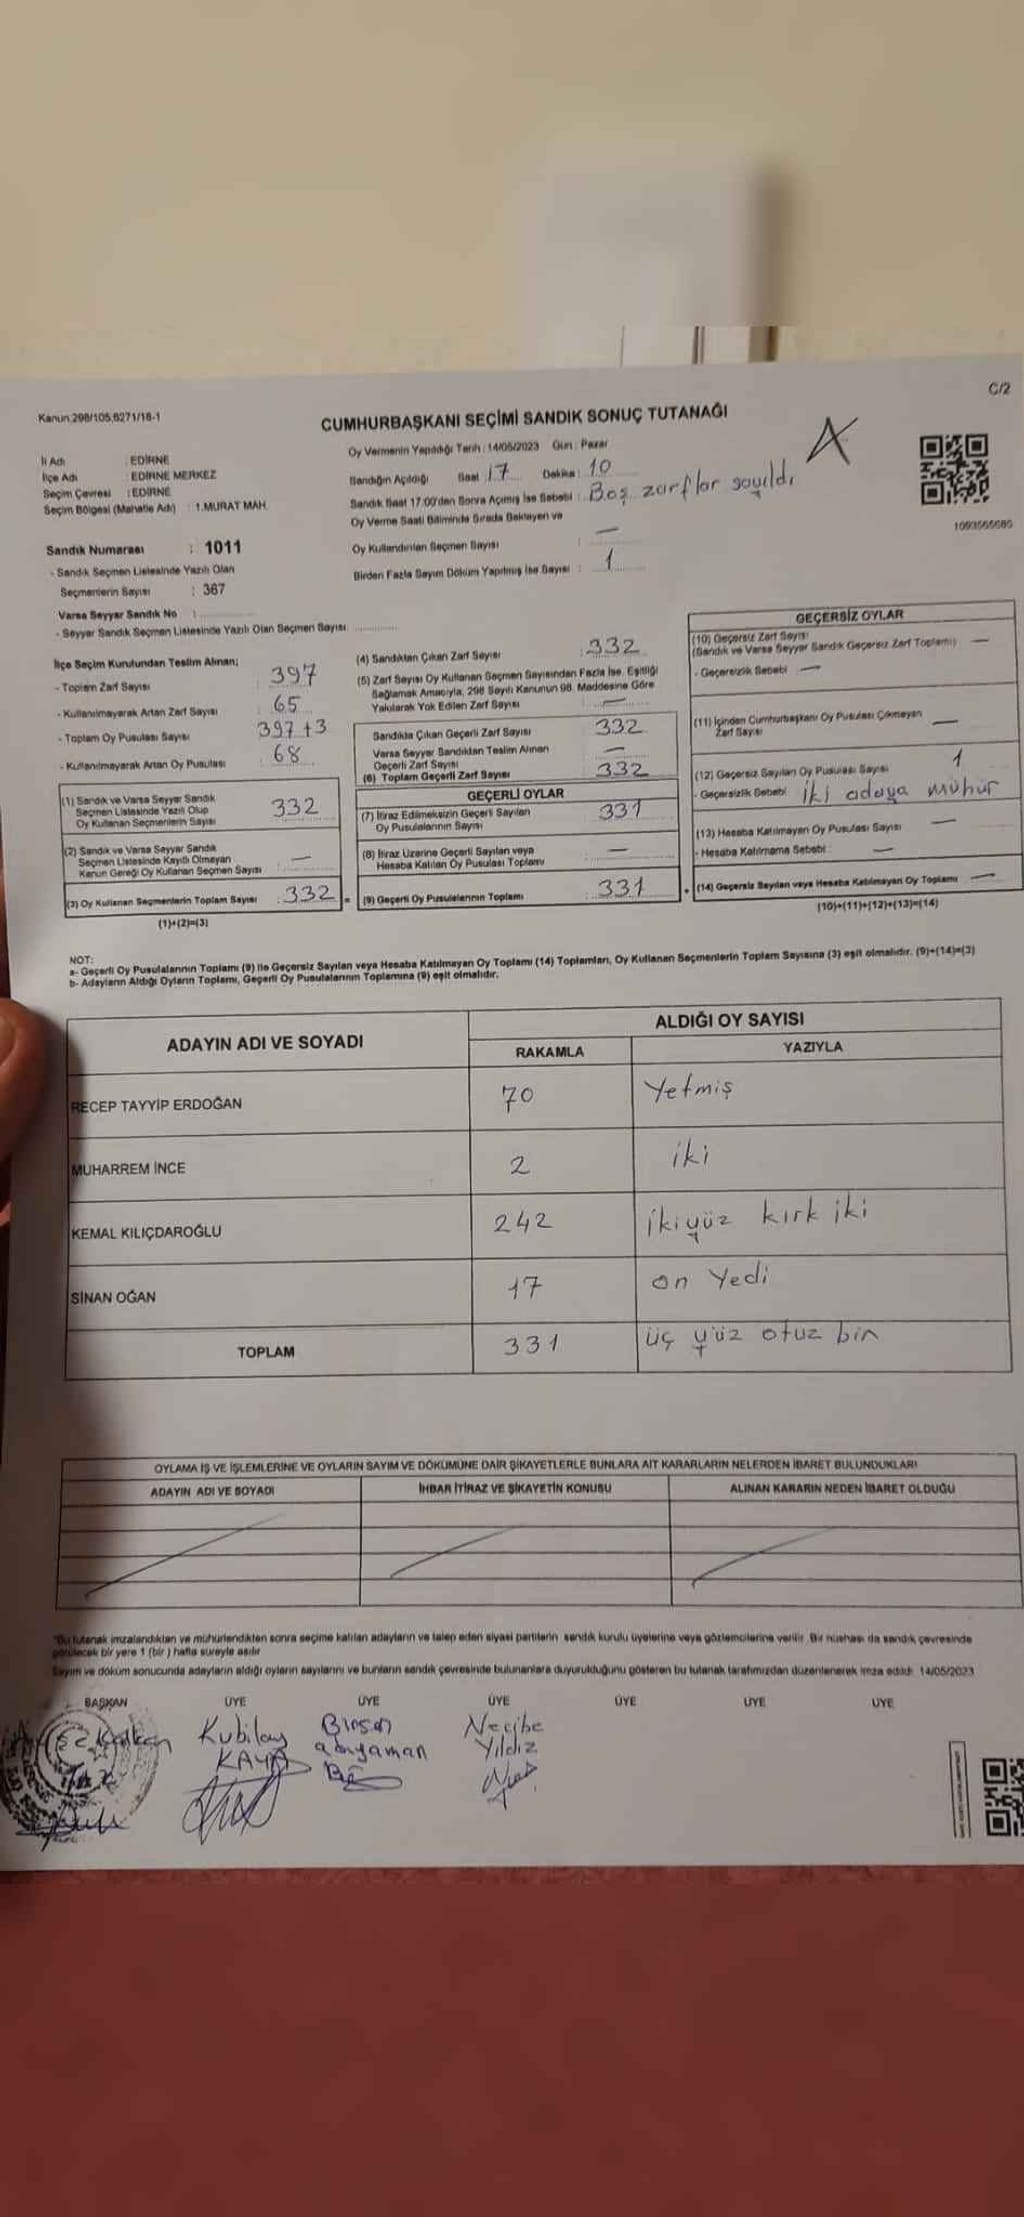 C/2
Kanun:298/105,6271/16-1
CUMHURBAŞKANI SEÇİMİ SANDIK SONUÇ TUTANAĞI
A
İl Adı : EDİRNE
İlçe Adı : EDİRNE MERKEZ
Seçim Çevresi : EDİRNE
Seçim Bölgesi (Mahalle Adı) : 1.MURAT MAH.
Oy Vermenin Yapıldığı Tarih : 14/05/2023 Gün : Pazar
Sandığın Açıldığı Saat 17 Dakika : 10
Sandık Saat 17:00'den Sonra Açımış İse Sebebi : Boş zarflar sayıldı
Oy Verme Saati Bitiminde Sırada Bekleyen ve
Oy Kullandırılan Seçmen Sayısı : —
Birden Fazla Sayım Döküm Yapılmış İse Sayısı : 1
Sandık Numarası : 1011
- Sandık Seçmen Listesinde Yazılı Olan
Seçmenlerin Sayısı : 367
Varsa Seyyar Sandık No :
- Seyyar Sandık Seçmen Listesinde Yazılı Olan Seçmen Sayısı
İlçe Seçim Kurulundan Teslim Alınan;
- Toplam Zarf Sayısı : 397
- Kullanılmayarak Artan Zarf Sayısı : 65
- Toplam Oy Pusulası Sayısı : 397+3
- Kullanılmayarak Artan Oy Pusulası : 68
(1) Sandık ve Varsa Seyyar Sandık
Seçmen Listesinde Yazılı Olup
Oy Kullanan Seçmenlerin Sayısı 332
(2) Sandık ve Varsa Seyyar Sandık
Seçmen Listesinde Kayıtlı Olmayan
Kanun Gereği Oy Kullanan Seçmen Sayısı —
(3) Oy Kullanan Seçmenlerin Toplam Sayısı : 332 =
(1)+(2)=(3)
(4) Sandıktan Çıkan Zarf Sayısı : 332
(5) Zarf Sayısı Oy Kullanan Seçmen Sayısından Fazla İse, Eşitliği
Sağlamak Amacıyla, 298 Sayılı Kanunun 98. Maddesine Göre
Yakılarak Yok Edilen Zarf Sayısı —
Sandıkta Çıkan Geçerli Zarf Sayısı 332
Varsa Seyyar Sandıktan Teslim Alınan
Geçerli Zarf Sayısı —
(6) Toplam Geçerli Zarf Sayısı 332
GEÇERLİ OYLAR
(7) İtiraz Edilmeksizin Geçerli Sayılan
Oy Pusulalarının Sayısı 331
(8) İtiraz Üzerine Geçerli Sayılan veya
Hesaba Katılan Oy Pusulası Toplamı —
(9) Geçerli Oy Pusulalarının Toplamı : 331 +
1093565685
GEÇERSİZ OYLAR
(10) Geçersiz Zarf Sayısı
(Sandık ve Varsa Seyyar Sandık Geçersiz Zarf Toplamı) —
- Geçersizlik Sebebi —
(11) İçinden Cumhurbaşkanı Oy Pusulası Çıkmayan
Zarf Sayısı —
(12) Geçersiz Sayılan Oy Pusulası Sayısı 1
- Geçersizlik Sebebi iki adaya mühür
(13) Hesaba Katılmayan Oy Pusulası Sayısı —
- Hesaba Katılmama Sebebi : —
(14) Geçersiz Sayılan veya Hesaba Katılmayan Oy Toplamı —
(10)+(11)+(12)+(13)=(14)
NOT:
a- Geçerli Oy Pusulalarının Toplamı (9) ile Geçersiz Sayılan veya Hesaba Katılmayan Oy Toplamı (14) Toplamları, Oy Kullanan Seçmenlerin Toplam Sayısına (3) eşit olmalıdır. (9)+(14)=(3)
b- Adayların Aldığı Oyların Toplamı, Geçerli Oy Pusulalarının Toplamına (9) eşit olmalıdır.
ADAYIN ADI VE SOYADI
ALDIĞI OY SAYISI
RAKAMLA YAZIYLA
RECEP TAYYİP ERDOĞAN 70 Yetmiş
MUHARREM İNCE 2 iki
KEMAL KILIÇDAROĞLU 242 ikiyüz kırk iki
SİNAN OĞAN 17 on yedi
TOPLAM 331 üç yüz otuz bir
OYLAMA İŞ VE İŞLEMLERİNE VE OYLARIN SAYIM VE DÖKÜMÜNE DAİR ŞİKAYETLERLE BUNLARA AİT KARARLARIN NELERDEN İBARET BULUNDUKLARI
ADAYIN ADI VE SOYADI İHBAR İTİRAZ VE ŞİKAYETİN KONUSU ALINAN KARARIN NEDEN İBARET OLDUĞU
*Bu tutanak imzalandıktan ve mühürlendikten sonra seçime katılan adayların ve talep eden siyasi partilerin sandık kurulu üyelerine veya gözlemcilerine verilir. Bir nushası da sandık çevresinde
görülecek bir yere 1 (bir ) hafta süreyle asılır
Sayım ve döküm sonucunda adayların aldığı oyların sayılarını ve bunların sandık çevresinde bulunanlara duyurulduğunu gösteren bu tutanak tarafımızdan düzenlenerek imza edildi. 14/05/2023
BAŞKAN ÜYE ÜYE ÜYE ÜYE ÜYE ÜYE
Kubilay KAYA
Birsen adıyaman
Necibe Yıldız